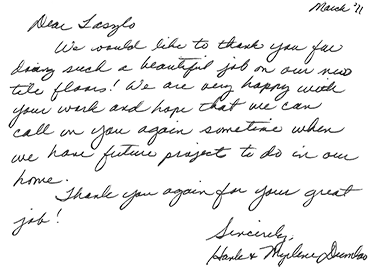 March '11
Dear Laszlo
We would like to thank you for
doing such a beautiful job on our new
tile floors! We are very happy with
your work and hope that we can
call on you again sometime when
we have future project to do in our
home.
Thank you again for your great
job!
Sincerely,
& Myrlene